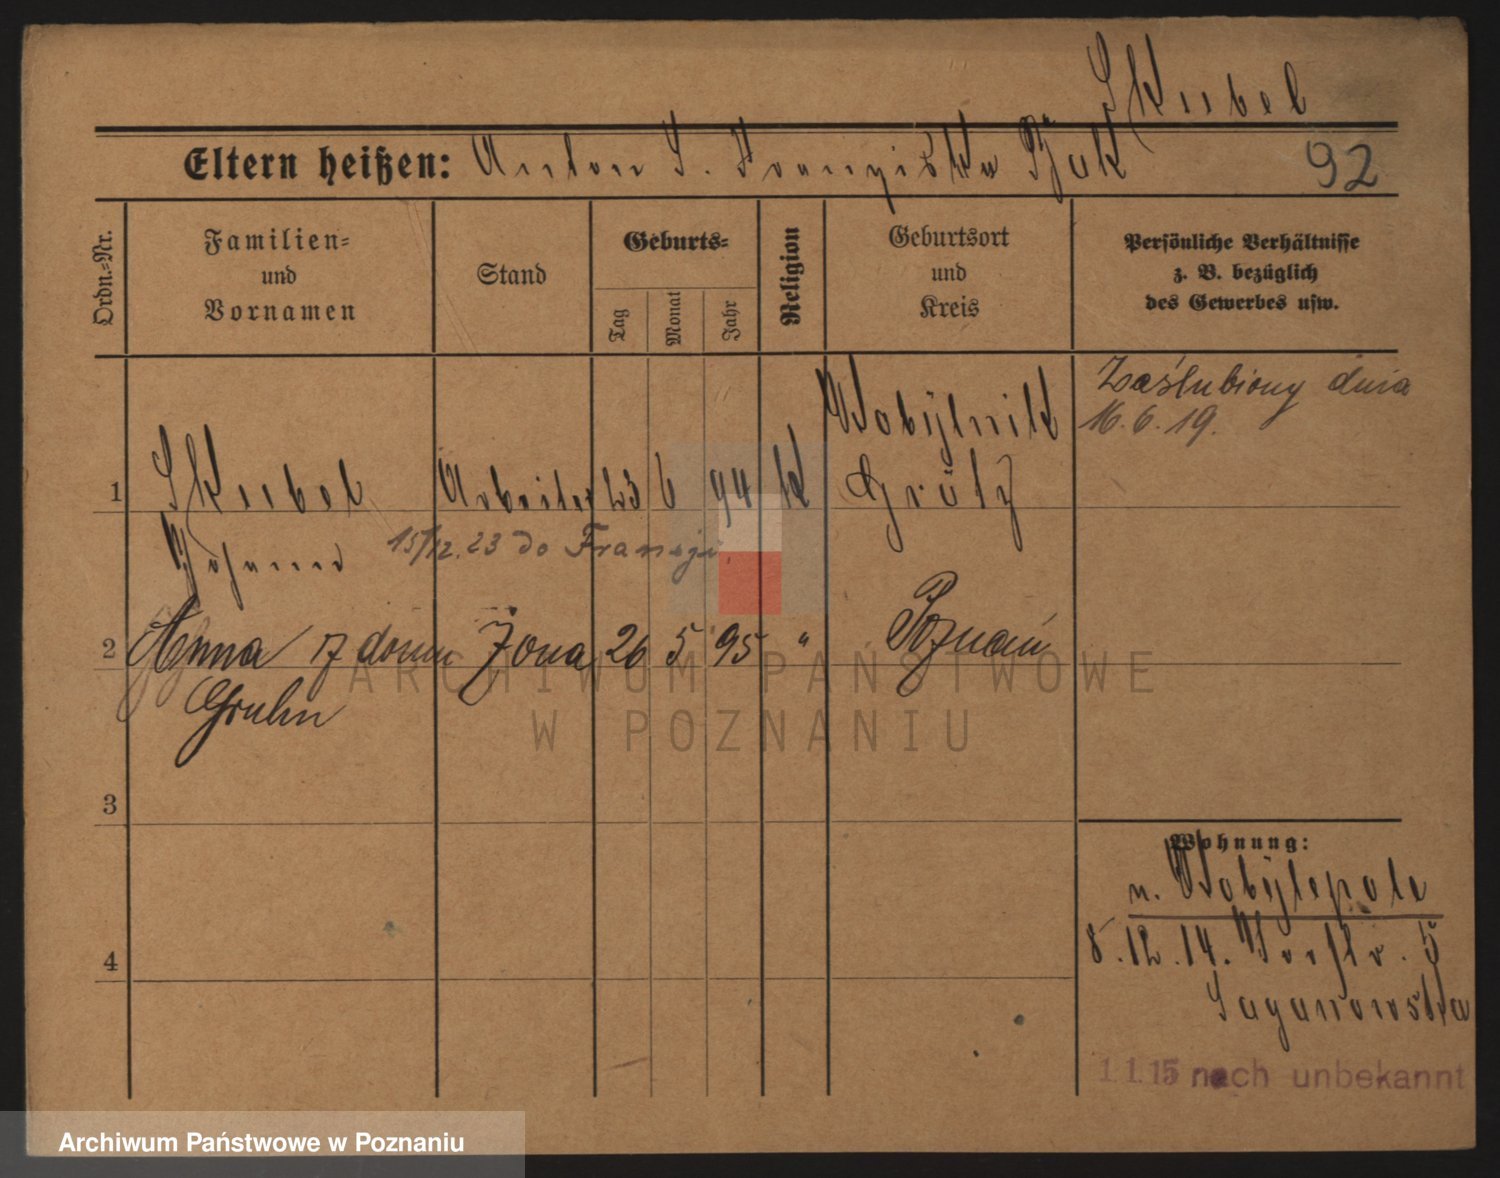 Skubel
Eltern heißen: Anton S. Franziska
92
Ordn.=Nr.
Familien=
und
Vornamen
Stand
Geburts=
Tag
Monat
Jahr
Religion
Geburtsort
und
Kreis
Persönliche Verhältnisse
z. B. bezüglich
des Gewerbes usw.
Zaślubiony dnia
16.6.19.
1
Skubel
Arbeiter
23
6
94
K
Wobylnik
Grätz
Johann
15/12.23 do Francji.
2
Anna z domu
Gruhn
Żona
26
5
95
"
Poznań
ARCHIWUM PAŃSTWOWE
W POZNANIU
3
4
Wohnung:
n. Kobylepole
8.12.14. 5
Saganowska
1.1.15 nach unbekannt
Archiwum Państwowe w Poznaniu